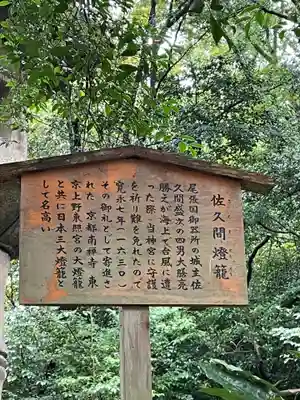 佐久間燈籠
尾張国御器所の城主佐
久間盛次の四男大膳亮
勝之が海上で台風に遭
った際、当神宮に守護
を祈り難を免れたので
寛永七年(一六三〇)
その御礼として寄進さ
れた 京都南禅寺・東
京上野東照宮の大燈籠
と共に日本三大燈籠と
して名高い